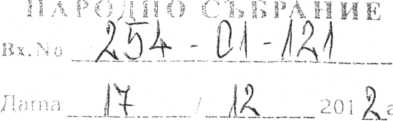 НАРОДНО СЪБРАНИЕ
Вх. № 254 - 01 - 121
Дата 17 / 12 2012 г